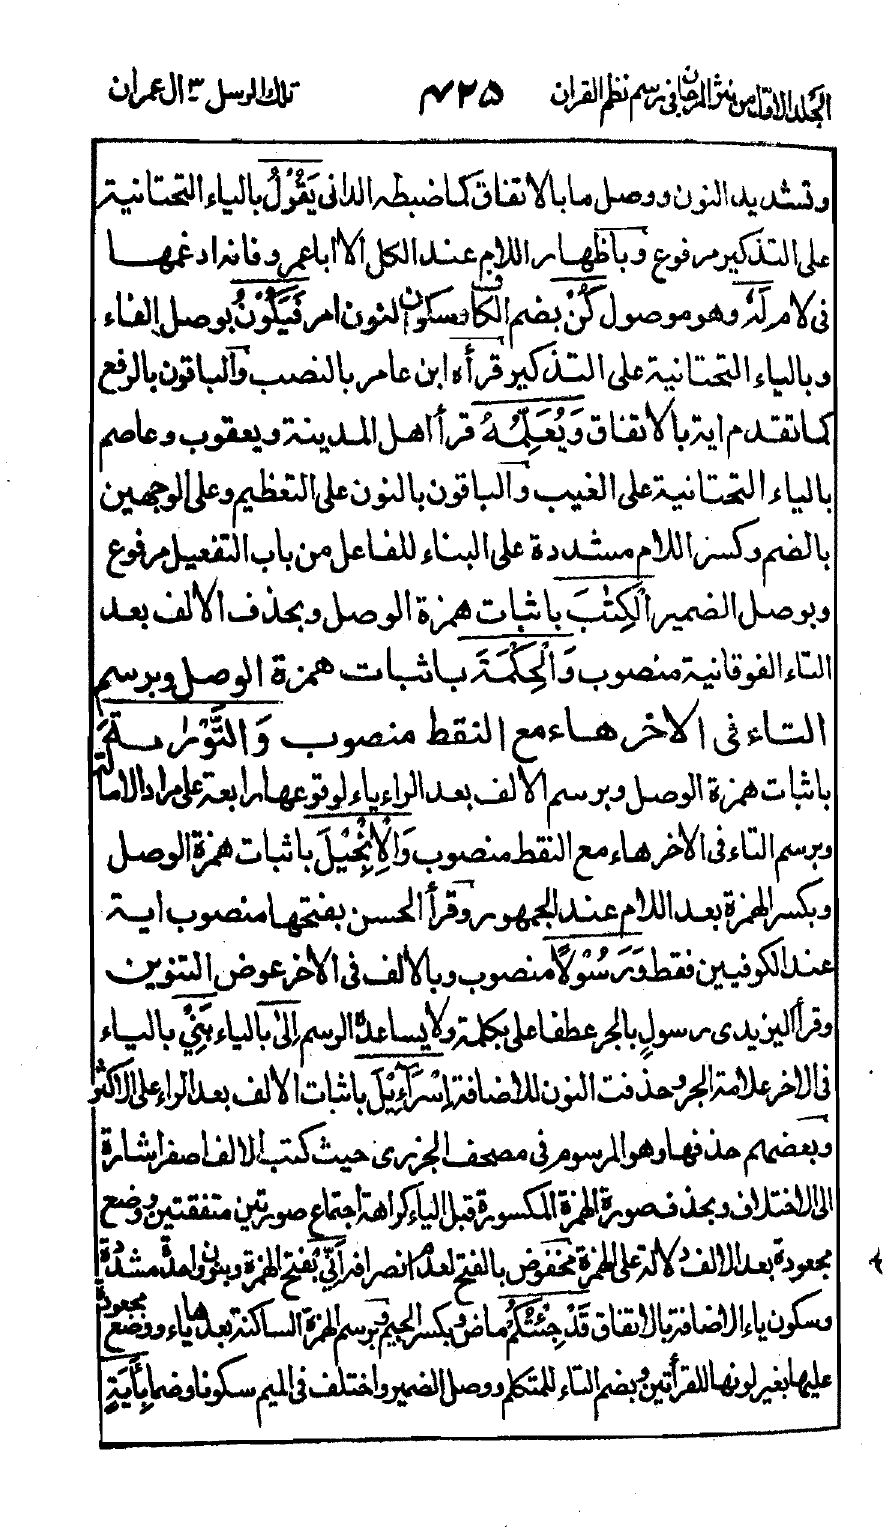 الجلد الاول من نثر المرجان في رسم نظم القران ٤٢٥ تلك الرسل ٣ ال عمران
وتشديد النون ووصل ما بالاتفاق كما ضبطه الداني يَقُوْلُ بالياء التحتانية
على التذكير مرفوع وباظهار اللام عند الكل الا ابا عمرو فانه ادغمها
في لام لَهٗ وهو موصول كُنْ بضم الكاف وسكون النون امر فَيَكُوْنُ بوصل الفاء
وبالياء التحتانية على التذكير قرأه ابن عامر بالنصب والباقون بالرفع
كما تقدم اية بالاتفاق وَيُعَلِّمُهُ قرأ اهل المدينة ويعقوب وعاصم
بالياء التحتانية على الغيب والباقون بالنون على التعظيم وعلى الوجهين
بالضم وكسر اللام مشددة على البناء للفاعل من باب التفعيل مرفوع
وبوصل الضمير الْكِتٰبَ باثبات همزة الوصل وبحذف الالف بعد
التاء الفوقانية منصوب وَالْحِكْمَةَ باثبات همزة الوصل وبرسم
التاء في الاخر هاء مع النقط منصوب وَالتَّوْرٰىةَ
باثبات همزة الوصل وبرسم الالف بعد الراء ياء لوقوعها رابعة على مراد الامالة
وبرسم التاء في الاخر هاء مع النقط منصوب وَالْاِنْجِيْلَ باثبات همزة الوصل
وبكسر الهمزة بعد اللام عند الجمهور وقرأ الحسن بفتحها منصوب اية
عند الكوفيين فقط وَرَسُوْلًا منصوب وبالالف في الاخر عوض التنوين
وقرأ اليزيدي رسولٍ بالجر عطفا على بكلمة ولا يساعده الرسم اِلٰى بالياء بَنِيْ بالياء
في الاخر علامة الجر وحذفت النون للاضافة اِسْرَآءِيْلَ باثبات الالف بعد الراء على الاكثر
وبعضهم حذفها وهو المرسوم في مصحف الجزري حيث كتب الالف اصفر اشارة
الى الاختلاف وبحذف صورة الهمزة المكسورة قبل الياء كراهة اجتماع صورتين متفقتين ووضع
مجعودة بعد الالف دلالة على الهمزة مخفوض بالفتح لعدم انصرافه اَنِّيْ بفتح الهمزة وبنون واحدة مشددة
وسكون ياء الاضافة بالاتفاق قَدْ جِئْتُكُمْ ماض وبكسر الجيم وبرسم الهمزة الساكنة بعدها ياء ووضع مجعودة
عليها بغير لونها للقرأتين وبضم التاء للمتكلم ووصل الضمير واختلف في الميم سكونا وضما بِاٰيَةٍ